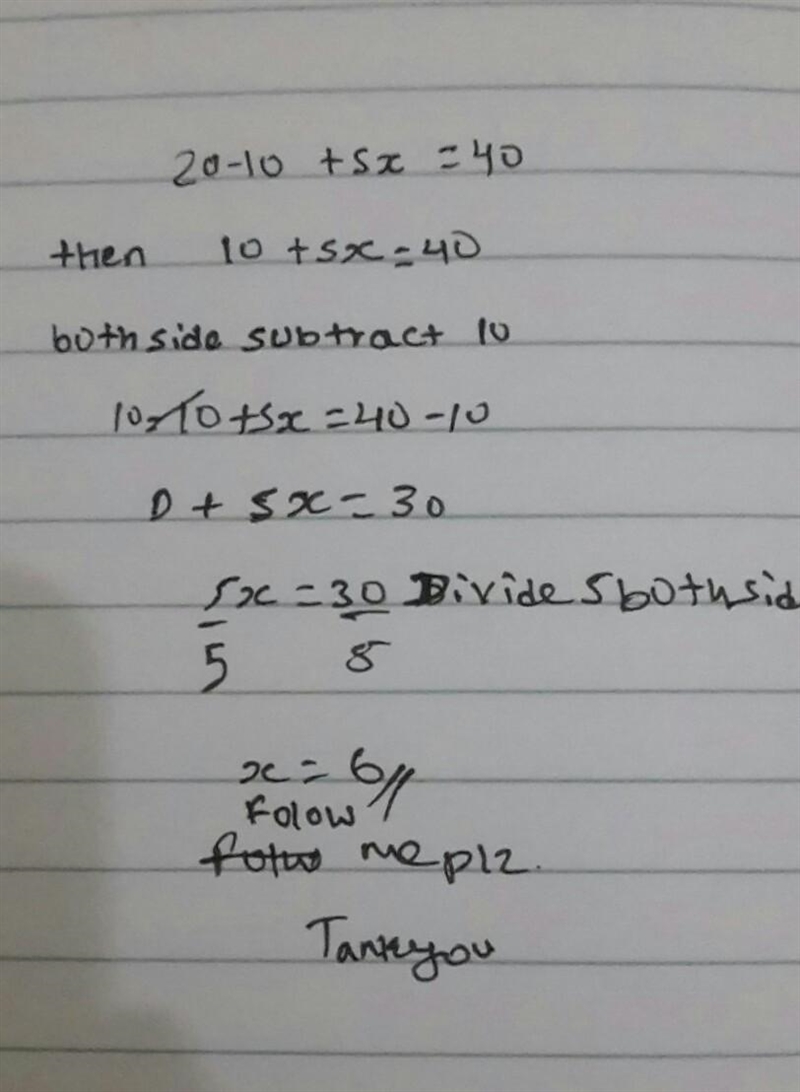 20-10 +5x =40
then 10 +5x=40
bothside subtract 10
10-10+5x=40-10
0 + 5x=30
5x =30 Divide 5 bothsid
5 5
x= 6//
Folow
me plz.
Tankyou